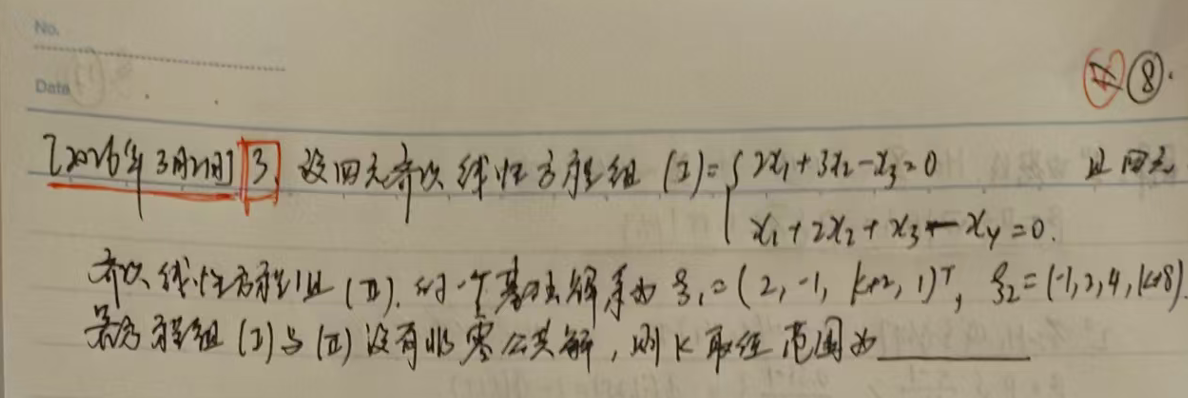 No.
Date
⑧.
[2026年3月21日] 3. 设四元齐次线性方程组 (I)={ 2x₁+3x₂-x₃=0 且四元
x₁+2x₂+x₃-x₄=0.
齐次线性方程组 (II). 的一个基础解系为 ξ₁=(2,-1, k+2, 1)ᵀ, ξ₂=(-1,2,4,k+8)
若方程组 (I) 与 (II) 没有非零公共解, 则 k 取值范围为